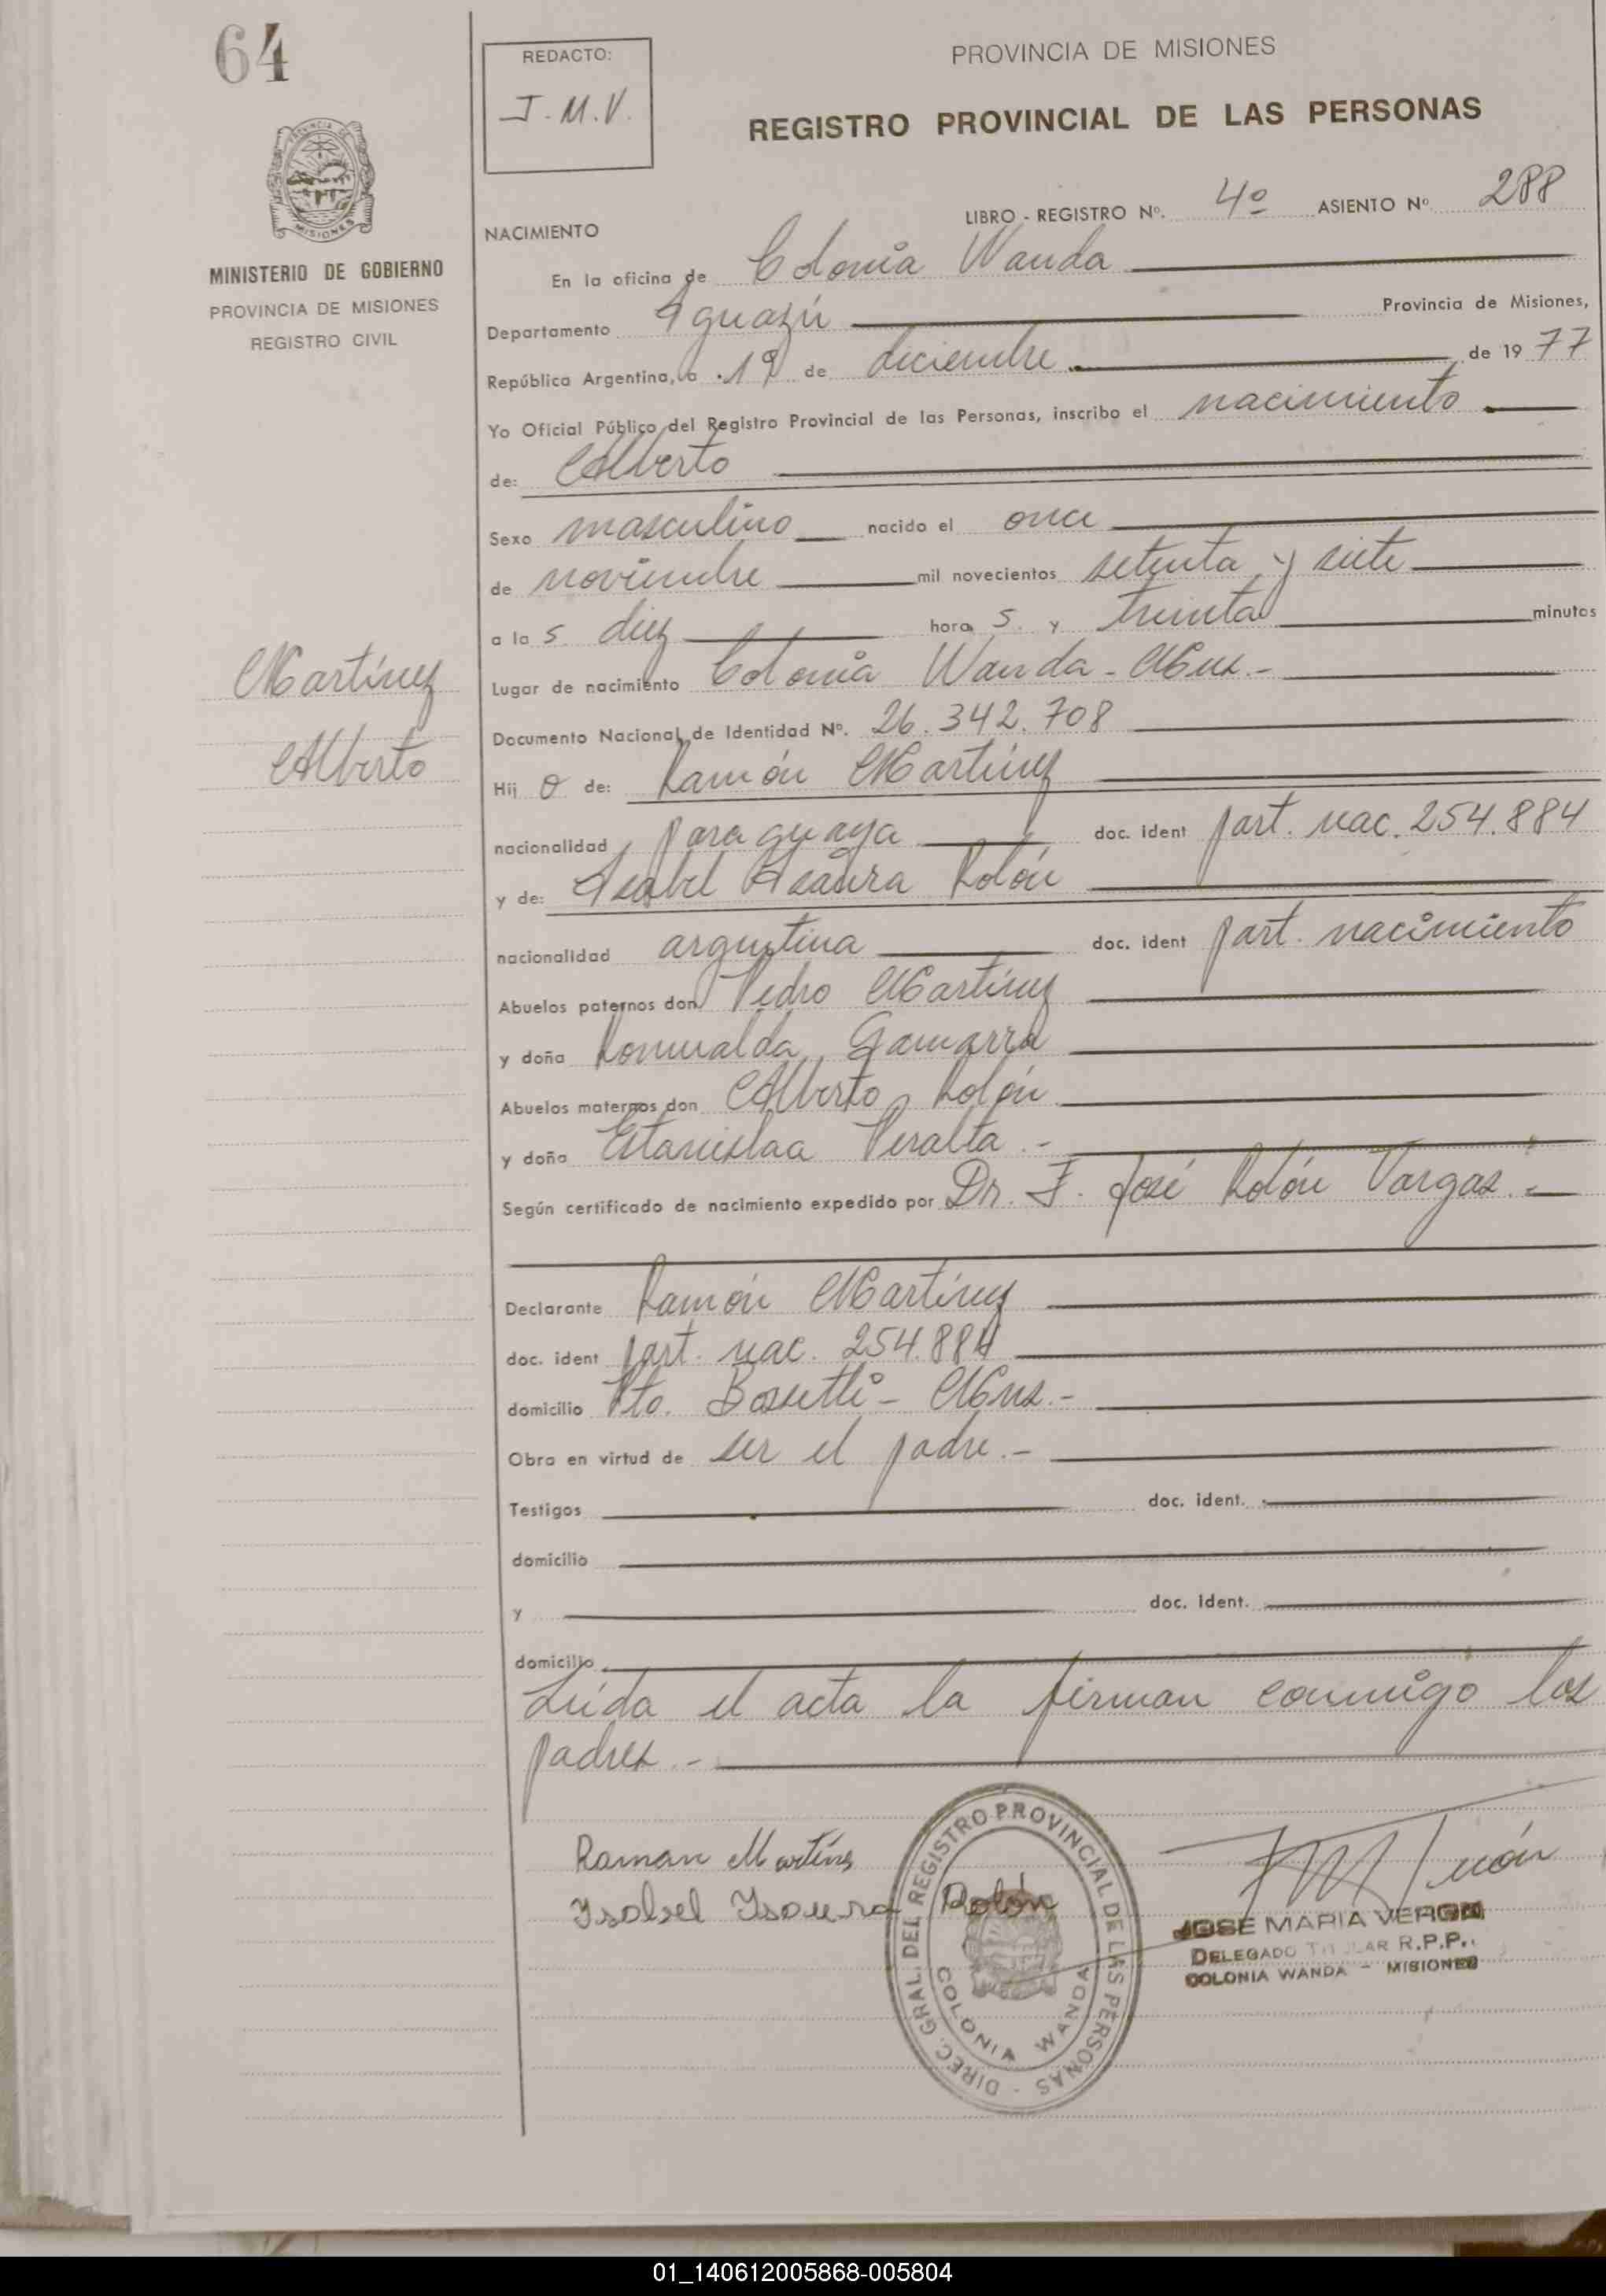 64
REDACTO:
J.M.V.
PROVINCIA DE MISIONES
REGISTRO PROVINCIAL DE LAS PERSONAS
PROVINCIA DE
MISIONES
MINISTERIO DE GOBIERNO
PROVINCIA DE MISIONES
REGISTRO CIVIL
LIBRO - REGISTRO Nº. 4º ASIENTO Nº 288
NACIMIENTO
En la oficina de Colonia Wanda
Departamento Iguazú Provincia de Misiones,
República Argentina, a 1º de diciembre de 19 77
Yo Oficial Público del Registro Provincial de las Personas, inscribo el nacimiento
de: Alberto
Sexo masculino nacido el once
de noviembre mil novecientos setenta y siete
a la s diez hora s. y treinta minutos
Martínez
Lugar de nacimiento Colonia Wanda - Mns.-
Alberto
Documento Nacional de Identidad Nº. 26.342.708
Hij o de: Ramón Martínez
nacionalidad paraguaya doc. ident part. nac. 254.884
y de: Isabel Isaura Rolón
nacionalidad argentina doc. ident part. nacimiento
Abuelos paternos don Pedro Martínez
y doña Romualda Gamarra
Abuelos maternos don Alberto Rolón
y doña Estanislaa Peralta.-
Según certificado de nacimiento expedido por Dr. F. José Rolón Vargas.-
Declarante Ramón Martínez
doc. ident part. nac. 254.884
domicilio Pto. Bossetti - Mns.-
Obra en virtud de ser el padre.-
Testigos doc. ident.
domicilio
y doc. ident.
domicilio
Leída el acta la firman conmigo los
padres.-
Raman Martines
Isabel Isaura Rolón
DIREC. GRAL. DEL REGISTRO PROVINCIAL DE LAS PERSONAS -
COLONIA WANDA
JOSE MARIA VERON
DELEGADO TITULAR R.P.P.
COLONIA WANDA - MISIONES
01_140612005868-005804